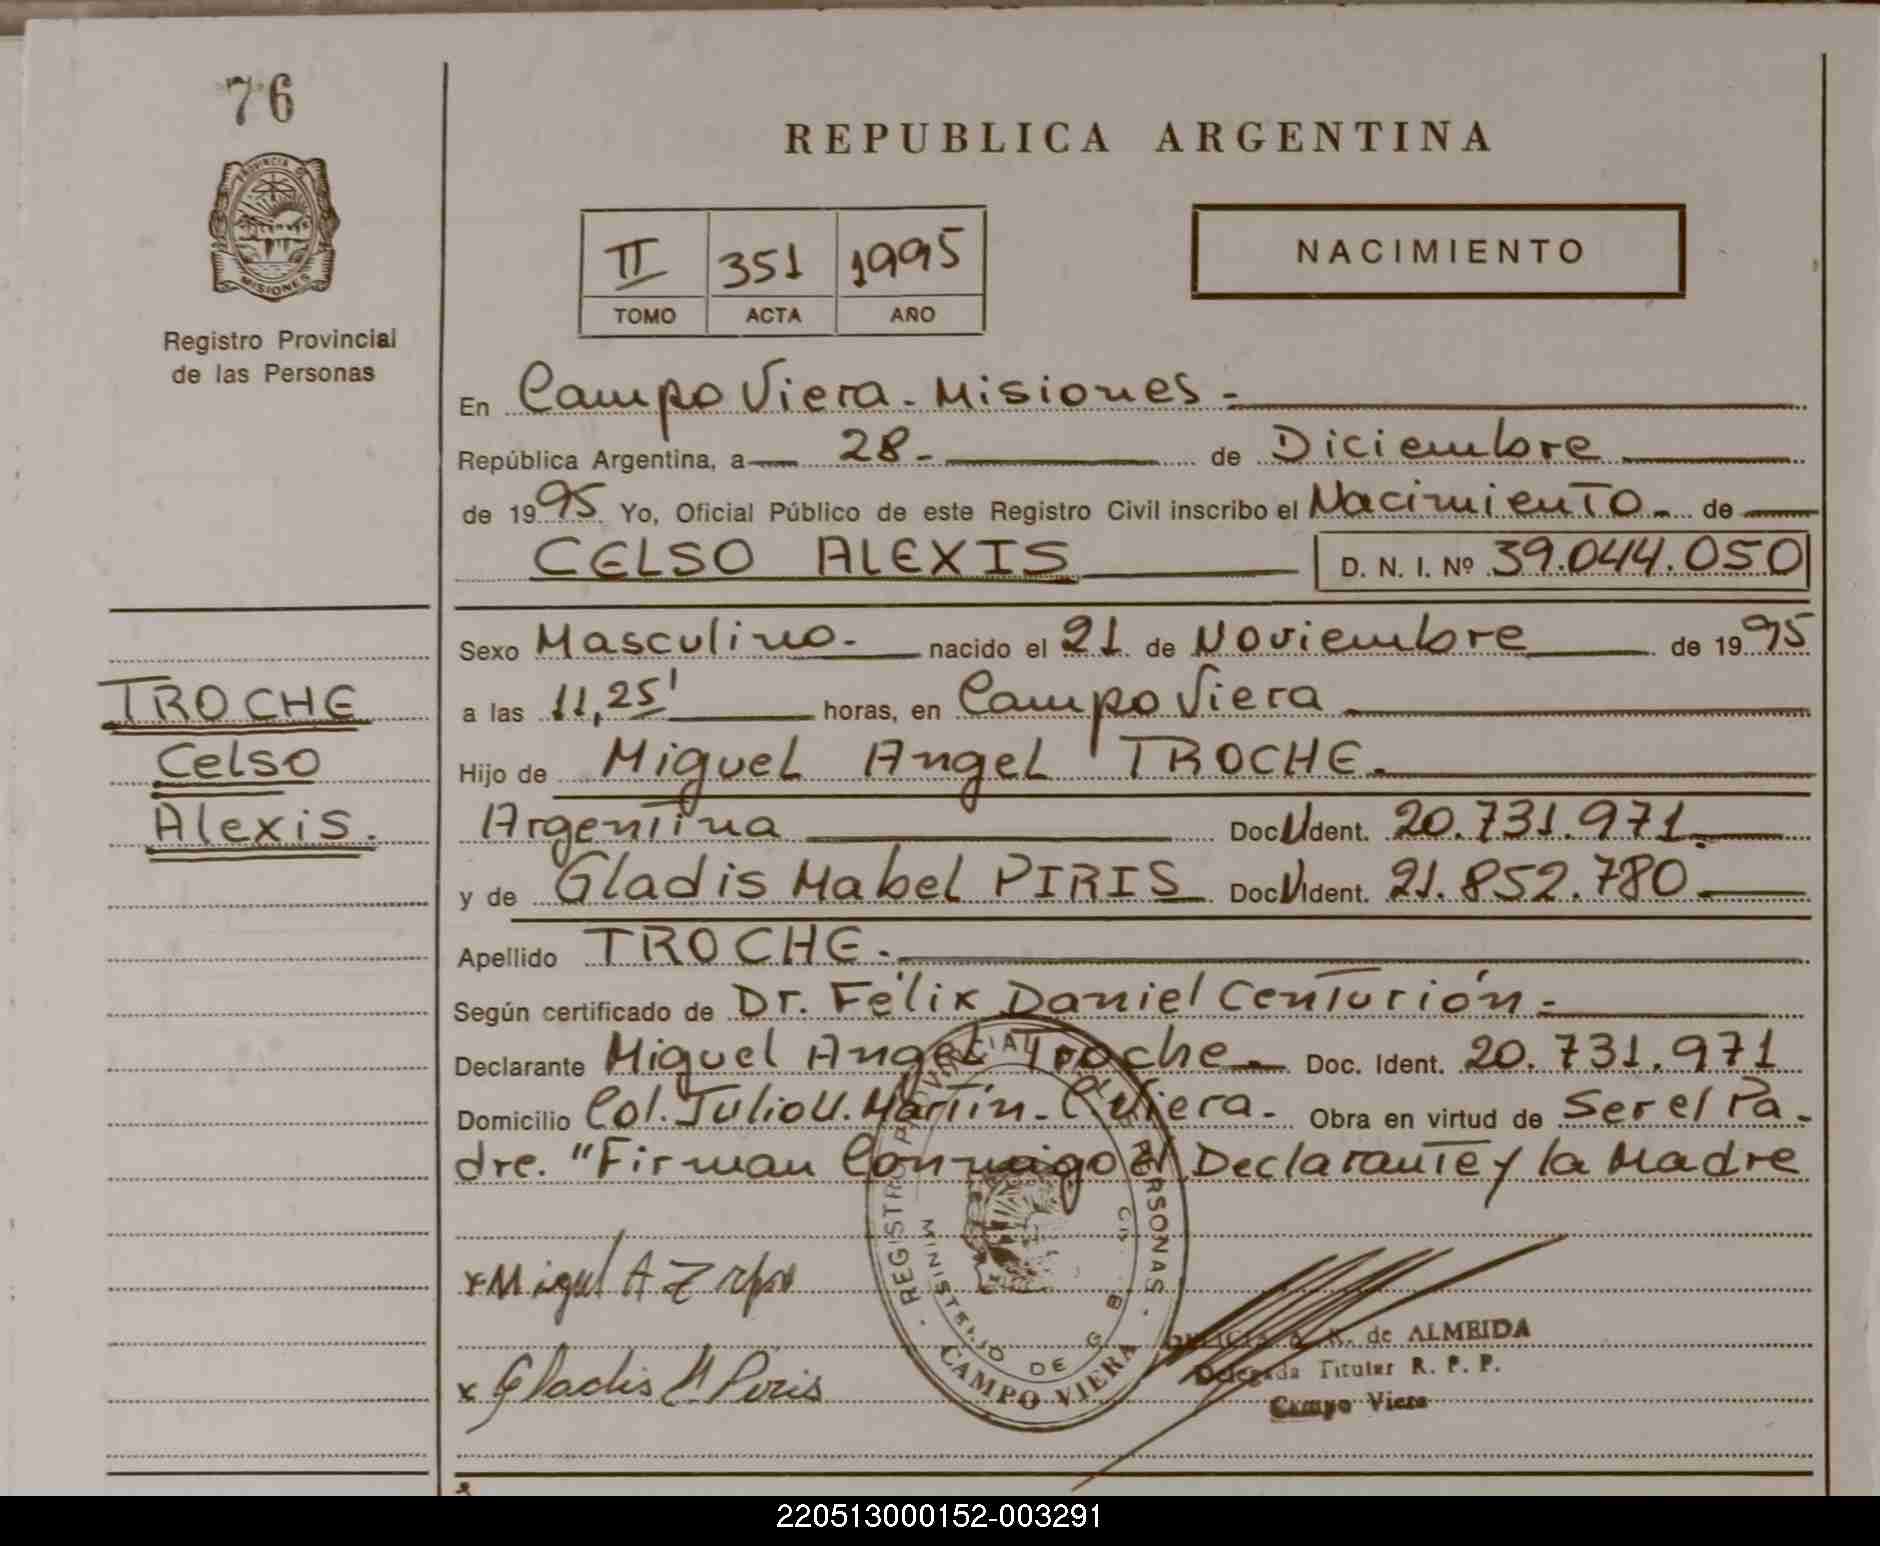 76
PROVINCIA DE
MISIONES
Registro Provincial
de las Personas
REPUBLICA ARGENTINA
II 351 1995
TOMO ACTA AÑO
NACIMIENTO
En Campo Viera - Misiones -
República Argentina, a 28 - de Diciembre
de 1995 Yo, Oficial Público de este Registro Civil inscribo el Nacimiento - de
CELSO ALEXIS D. N. I. Nº 39.044.050
Sexo Masculino - nacido el 21 de Noviembre de 1995
TROCHE
Celso
Alexis.
a las 11,25' horas, en Campo Viera
Hijo de Miguel Angel TROCHE.
Argentina Doc U Ident. 20.731.971.
y de Gladis Mabel PIRIS Doc U Ident. 21.852.780
Apellido TROCHE.
Según certificado de Dr. Félix Daniel Centurión -
Declarante Miguel Angel Troche - Doc. Ident. 20.731.971
Domicilio Col. Julio U. Martín - C. Viera - Obra en virtud de Ser el Pa-
dre. "Firman Conmigo el Declarante y la Madre
REGISTRO PROVINCIAL DE LAS PERSONAS
MINISTERIO DE G
CAMPO VIERA
x Miguel A
x Gladis M Piris
R. de ALMEIDA
Delegada Titular R. P. P.
Campo Viera
220513000152-003291